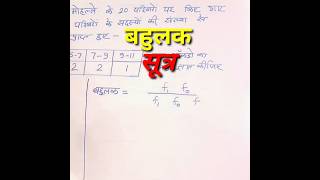 मोहल्ले के 20 परिवारों पर किए गए
परिवारों के सदस्यों की संख्या से
प्राप्त हुए -
बहुलक
सूत्र
5-7 7-9 9-11
2 2 1
कीजिए
बहुलक =
f₁ f₀
f₁ f₀ f